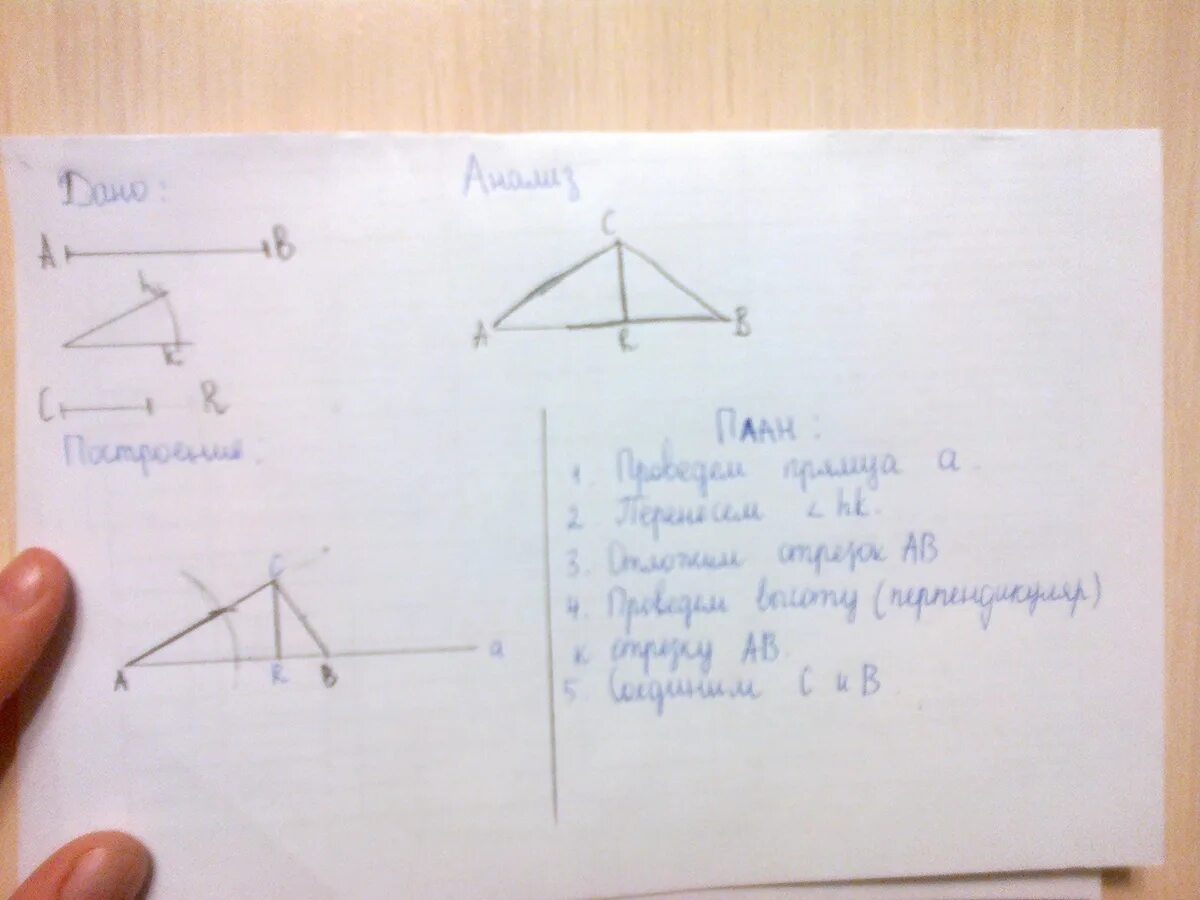 Дано:
A B
hk
C R
Анализ
C
A R B
Построение:
C
A R B a
План:
1. Проведем прямца a.
2. Переносем < hk.
3. Отложим отрезок AB
4. Проведем высоту (перпендикуляр)
к отрезку AB.
5. Соединим C и B